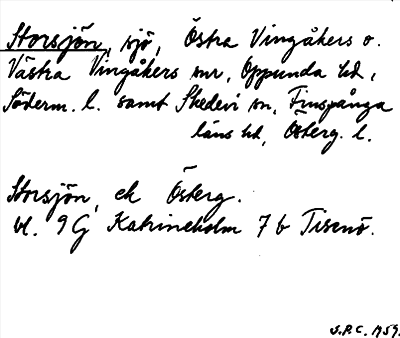 Storsjön, sjö, Östra Vingåkers o.
Västra Vingåkers snr, Oppunda hd,
Söderm. l. samt Skedevi sn, Finspånga
läns hd, Österg. l.
Storsjön, ek Österg.
bl. 9 G Katrineholm 7 b Tisenö.
1959.